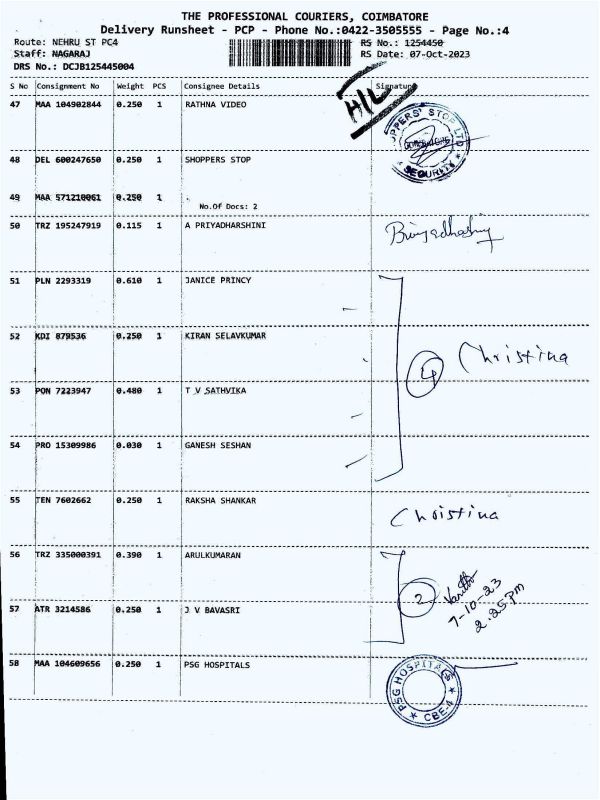 THE PROFESSIONAL COURIERS, COIMBATORE
Delivery Runsheet - PCP - Phone No.:0422-3505555 - Page No.:4
Route: NEHRU ST PC4 RS No.: 1254450
Staff: NAGARAJ RS Date: 07-Oct-2023
DRS No.: DCJB125445004
S No Consignment No Weight PCS Consignee Details Signature
H/L
47 MAA 104902844 0.250 1 RATHNA VIDEO
SHOPPERS' STOP LTD
* SECURITY *
48 DEL 600247650 0.250 1 SHOPPERS STOP
49 MAA 571210061 0.250 1 .
No.Of Docs: 2
50 TRZ 195247919 0.115 1 A PRIYADHARSHINI
51 PLN 2293319 0.610 1 JANICE PRINCY
52 KDI 879536 0.250 1 KIRAN SELAVKUMAR
4 Christina
53 PON 7223947 0.480 1 T V SATHVIKA
54 PRO 15309986 0.030 1 GANESH SESHAN
55 TEN 7602662 0.250 1 RAKSHA SHANKAR
Christina
56 TRZ 335000391 0.390 1 ARULKUMARAN
2
7-10-23
2:25 PM
57 ATR 3214586 0.250 1 J V BAVASRI
58 MAA 104609656 0.250 1 PSG HOSPITALS
PSG HOSPITALS
* CBE-4 *